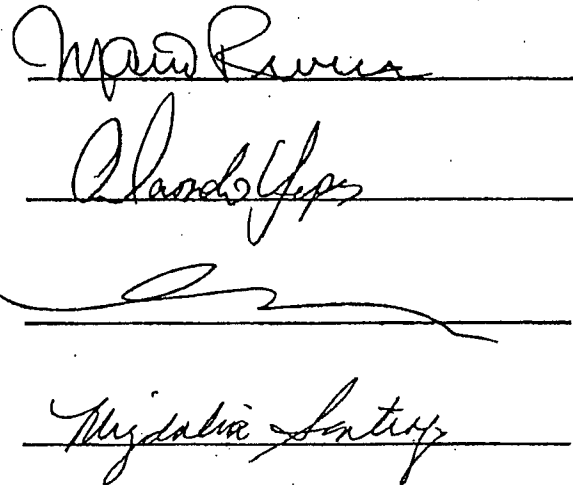 Mario Rivera
Orlando Yepes
Migdalia Santiago